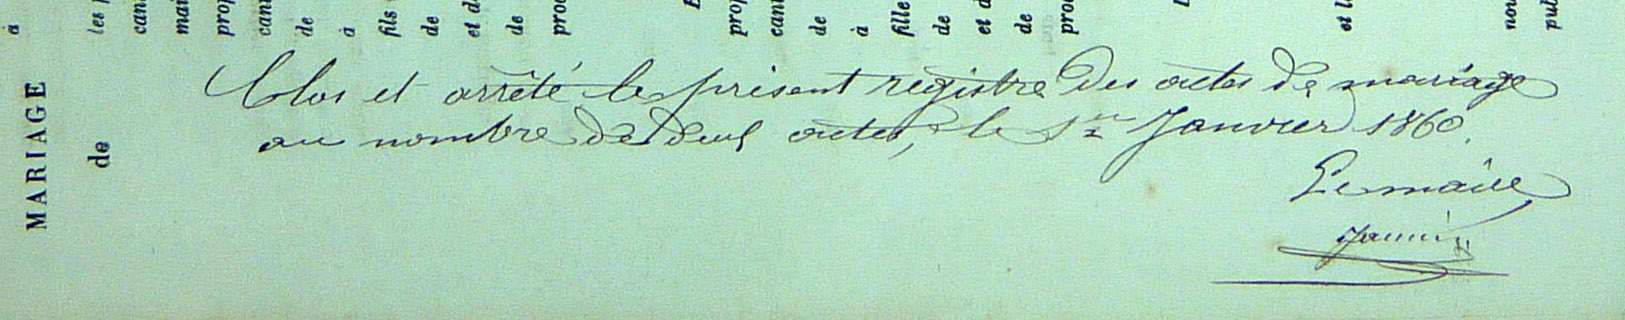 à
MARIAGE
de
les p
cant
mai
prop
cant
de
à
fils
de
et de
de
prof
prop
cant
de
à
fille
de
et d
de
prof
et l
nou
pub
Clos et arrêté le présent registre des actes de mariage
au nombre de deux actes, le 1er Janvier 1860.
Le maire